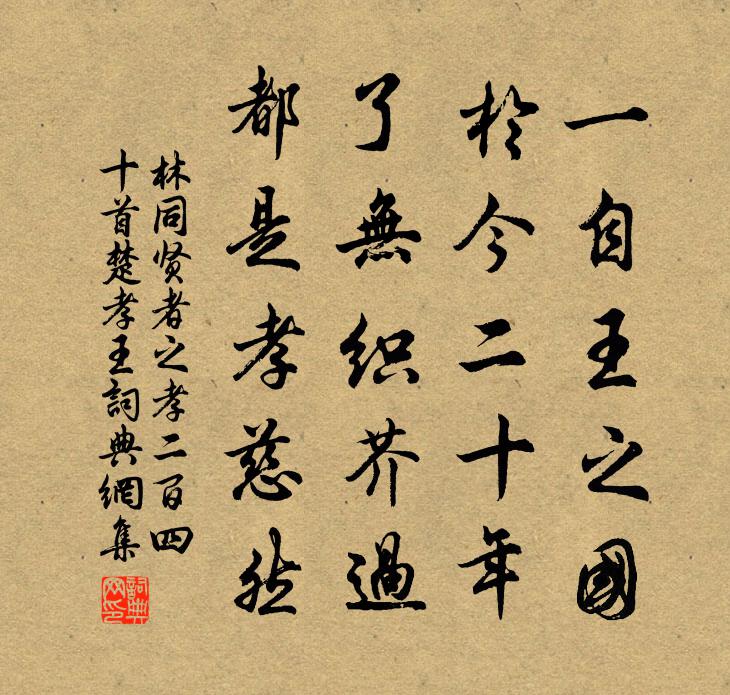 一自王之國
於今二十年
了無織芥過
都是孝慈然
林同贤者之孝二百四
十首楚孝王詞典網集
詞典网印